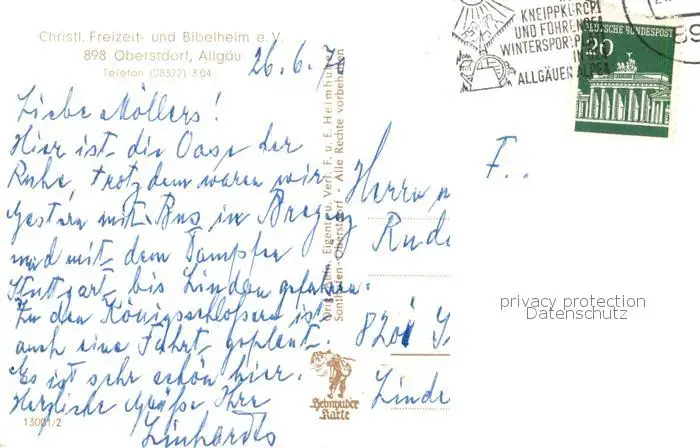 Christl. Freizeit- und Bibelheim e. V.
898 Oberstdorf, Allgäu
Telefon (08322) 3 04
26.6.70
Liebe Möllers!
Hier ist die Oase der
Ruhe, trotzdem waren wir
gestern mit Bus in Bregenz
und mit dem Dampfer
Stuttgart bis Lindau gefahren.
Zu den Königsschlössern ist
auch eine Fahrt geplant.
Es ist sehr schön hier.
Herzliche Grüße Ihre
Linhardts
13001/2
Orig. Aufn. Eigent. u. Verl. F. u. E. Heimhuber
Sonthofen-Oberstdorf - Alle Rechte vorbehalten
Heimhuber
Karte
KNEIPPKUROR
UND FÜHRENDER
WINTERSPORTPL
IN
ALLGÄUER ALPE
DEUTSCHE BUNDESPOST
20
F..
Herrn
Rud
8201
privacy protection
Datenschutz